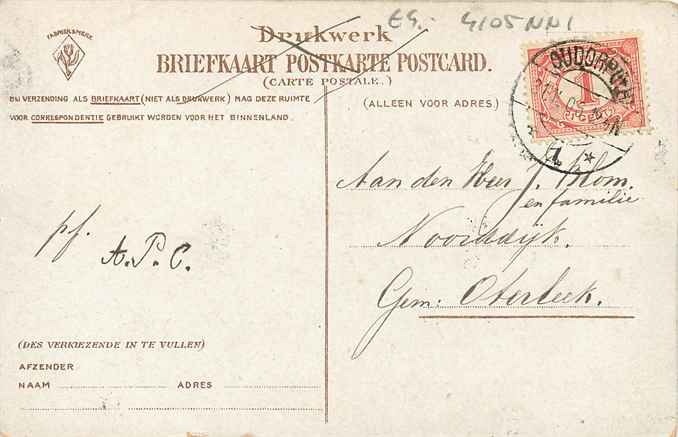 FABRIEKSMERK
EG. 4105 NN1
Drukwerk
BRIEFKAART POSTKARTE POSTCARD.
(CARTE POSTALE.)
BIJ VERZENDING ALS BRIEFKAART (NIET ALS DRUKWERK) MAG DEZE RUIMTE
VOOR CORRESPONDENTIE GEBRUIKT WORDEN VOOR HET BINNENLAND.
(ALLEEN VOOR ADRES.)
1
Aan den Heer J. Blom.
en familie
Noorddijk.
Gem: Oterleek.
pf.
A.P.C.
(DES VERKIEZENDE IN TE VULLEN)
AFZENDER
NAAM ADRES